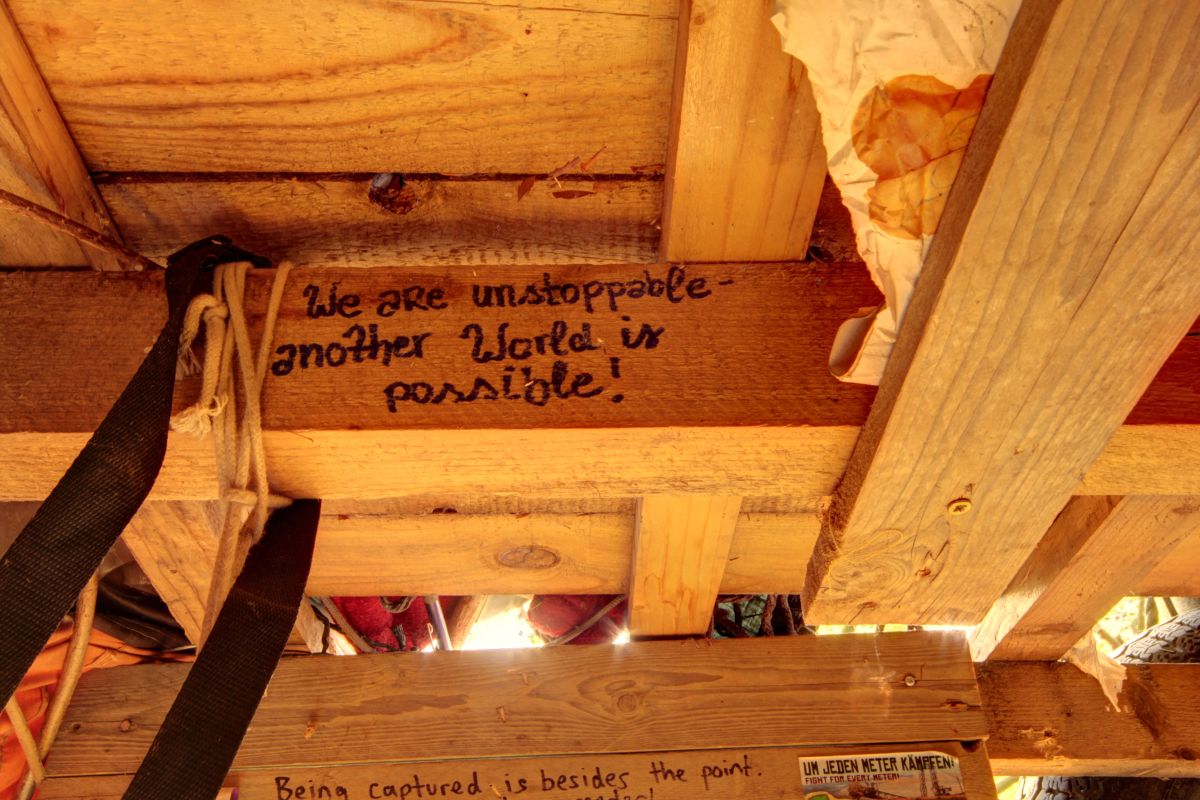 We are unstoppable -
another World is
possible!
Being captured is besides the point.
UM JEDEN METER KÄMPFEN!
FIGHT FOR EVERY METER!